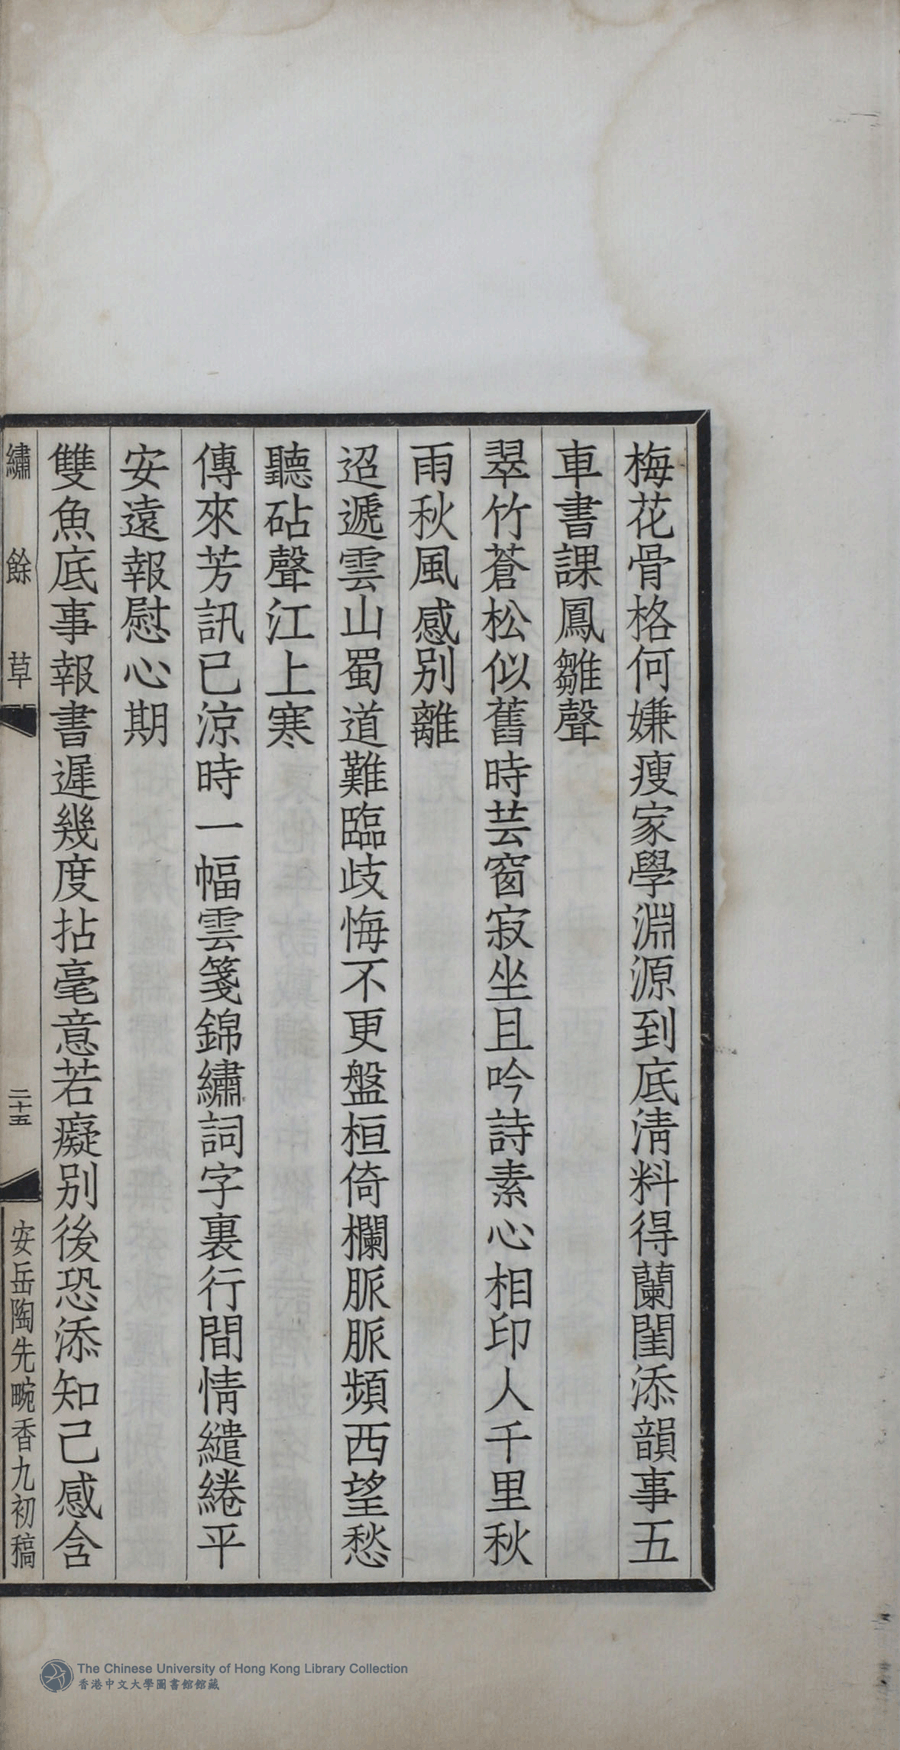 梅花骨格何嫌瘦家學淵源到底清料得蘭閨添韻事五
車書課鳳雛聲
翠竹蒼松似舊時芸窗寂坐且吟詩素心相印人千里秋
雨秋風感別離
迢遞雲山蜀道難臨歧悔不更盤桓倚欄脈脈頻西望愁
聽砧聲江上寒
傳來芳訊已涼時一幅雲箋錦繡詞字裏行間情繾綣平
安遠報慰心期
雙魚底事報書遲幾度拈毫意若癡別後恐添知己感含
繡餘草
二十五
安岳陶先畹香九初稿
The Chinese University of Hong Kong Library Collection
香港中文大學圖書館館藏